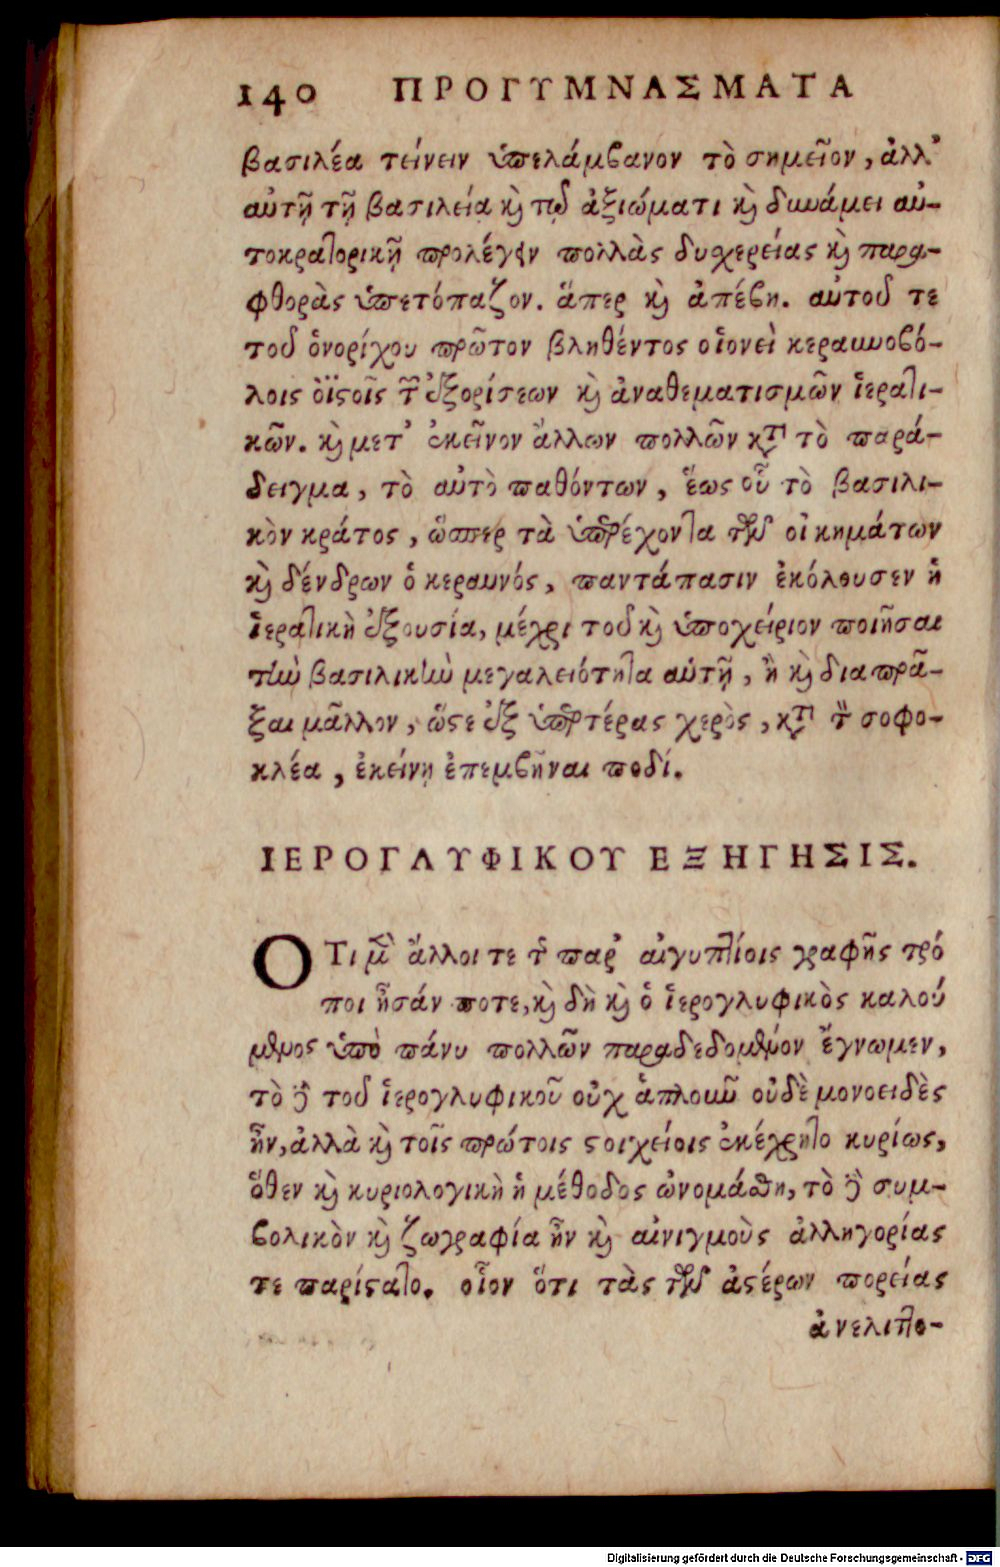 140 ΠΡΟΓΥΜΝΑΣΜΑΤΑ
βασιλέα τείνειν ὑπελάμβανον τὸ σημεῖον, ἀλλ᾽
αὐτῇ τῇ βασιλείᾳ καὶ τῷ ἀξιώματι καὶ δυνάμει αὐ-
τοκρατορικῇ προλέγειν πολλὰς δυχερείας καὶ παρα-
φθορὰς ὑπετόπαζον. ἅπερ καὶ ἀπέβη. αὐτοῦ τε
τοῦ ὁνορίχου πρῶτον βληθέντος οἱονεὶ κεραυνοβό-
λοις ὀϊστοῖς τῶν ἐξορίσεων καὶ ἀναθεματισμῶν ἱερατι-
κῶν. καὶ μετ᾽ ἐκεῖνον ἄλλων πολλῶν κατὰ τὸ παρά-
δειγμα, τὸ αὐτὸ παθόντων, ἕως οὗ τὸ βασιλι-
κὸν κράτος, ὥσπερ τὰ ὑπερέχοντα τῶν οἰκημάτων
καὶ δένδρων ὁ κεραυνός, παντάπασιν ἐκόλουσεν ἡ
ἱερατικὴ ἐξουσία, μέχρι τοῦ καὶ ὑποχείριον ποιῆσαι
τὴν βασιλικὴν μεγαλειότητα αὐτῇ, ἢ καὶ διαπρᾶ-
ξαι μᾶλλον, ὥστε ἐξ ὑπερτέρας χερὸς, κατὰ τὸν σοφο-
κλέα, ἐκείνῃ ἐπεμβῆναι ποδί.
ΙΕΡΟΓΛΥΦΙΚΟΥ ΕΞΗΓΗΣΙΣ.
ΟΤι μὲν ἄλλοι τε τῆς παρ᾽ αἰγυπτίοις γραφῆς τρό
ποι ἦσάν ποτε, καὶ δὴ καὶ ὁ ἱερογλυφικὸς καλού
μενος ὑπὸ πάνυ πολλῶν παραδεδομένον ἔγνωμεν,
τὸ δὲ τοῦ ἱερογλυφικοῦ οὐχ ἁπλοῦν οὐδὲ μονοειδὲς
ἦν, ἀλλὰ καὶ τοῖς πρώτοις στοιχείοις ἐκέχρητο κυρίως,
ὅθεν καὶ κυριολογικὴ ἡ μέθοδος ὠνομάσθη, τὸ δὲ συμ-
βολικὸν καὶ ζωγραφία ἦν καὶ αἰνιγμοὺς ἀλληγορίας
τε παρίστατο. οἷον ὅτι τὰς τῶν ἀστέρων πορείας
ἀνελιττο-
Digitalisierung gefördert durch die Deutsche Forschungsgemeinschaft - DFG